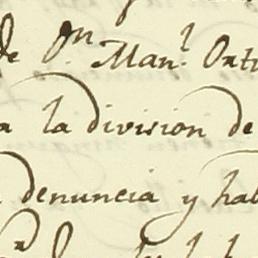 de Dn. Manl. Ort
a la division de
denuncia y hab